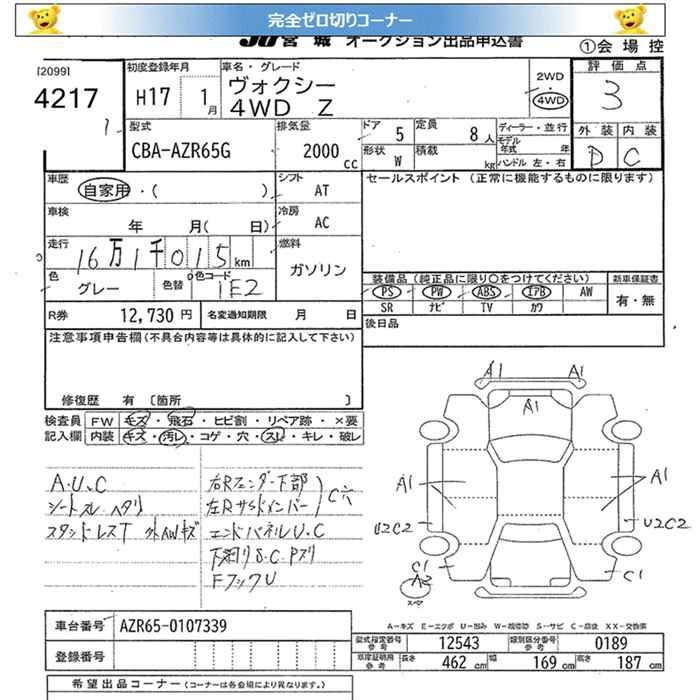 完全ゼロ切りコーナー
JU宮城 オークション出品申込書
①会場控
[2099]
4217
1
初度登録年月
H17 1月
車名・グレード
ヴォクシー
4WD Z
2WD
・
4WD
評価点
3
型式
CBA-AZR65G
排気量
2000 cc
ドア 5
定員 8人
形状 W
積載 kg
ディーラー・並行
モデル年式 年
ハンドル 左・右
外装 内装
D C
車歴
自家用・( )
シフト AT
車検 年 月( 日)
冷房 AC
走行 16万1千015km
燃料
ガソリン
色 グレー
色替
色コード 1E2
セールスポイント (正常に機能するものに限ります)
装備品(純正品に限り○をつけてください)
新車保証書
PS PW ABS エアB AW
SR ナビ TV カワ
有・無
R券 12,730円
名変通知期限 月 日
後日品
注意事項申告欄(不具合内容等は具体的に記入して下さい)
修復歴 有 〔箇所 〕
検査員記入欄
FW キズ・飛石・ヒビ割・リペア跡・×要
内装 キズ・汚レ・コゲ・穴・スレ・キレ・破レ
A.U.C
シートスレ ヘタリ
スタッドレスT 外AWキズ
右Rフェンダー下部
左Rサイドメンバー
C穴
エンドパネルU.C
下廻りS.C.Pスリ
FフックU
A1 A1
A1
A1 A1
U2C2 U2C2
C1 C1
A2
スペア
A-キズ E-エクボ U-凹み W-補修跡 S-サビ C-腐食 XX-交換済
車台番号 AZR65-0107339
登録番号
型式指定番号 参考 12543
類別区分番号 参考 0189
車庫証明用 参考 長さ 462cm 幅 169cm 高さ 187cm
希望出品コーナー(コーナーは各会場により異なります。)